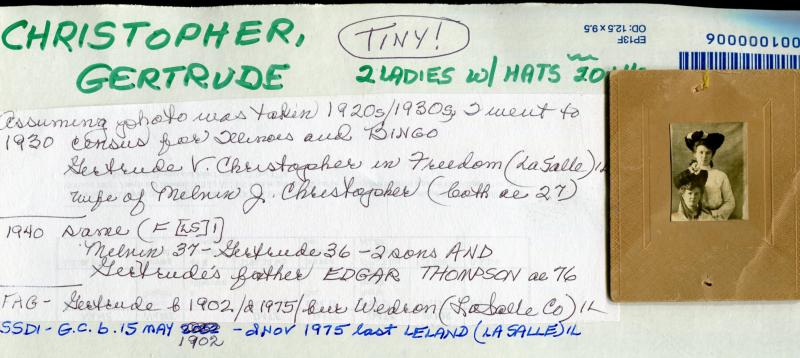 CHRISTOPHER,
GERTRUDE
TINY!
2 LADIES w/ HATS
EP13F
OD: 12.5 x 9.5
0001000006
Assuming photo was taken 1920s/1930s, I went to
1930 census for Illinois and BINGO
Gertrude V. Christopher in Freedom (LaSalle) IL
wife of Melvin J. Christopher (both ae 27)
1940 same (F [LS] 1)
Melvin 37 - Gertrude 36 - 2 sons AND
Gertrude's father EDGAR THOMPSON ae 76
FAG - Gertrude b 1902/d 1975/bur Wedron (LaSalle Co) IL
SSDI - G.C. b. 15 MAY 1902 - d NOV 1975 last LELAND (LA SALLE) IL